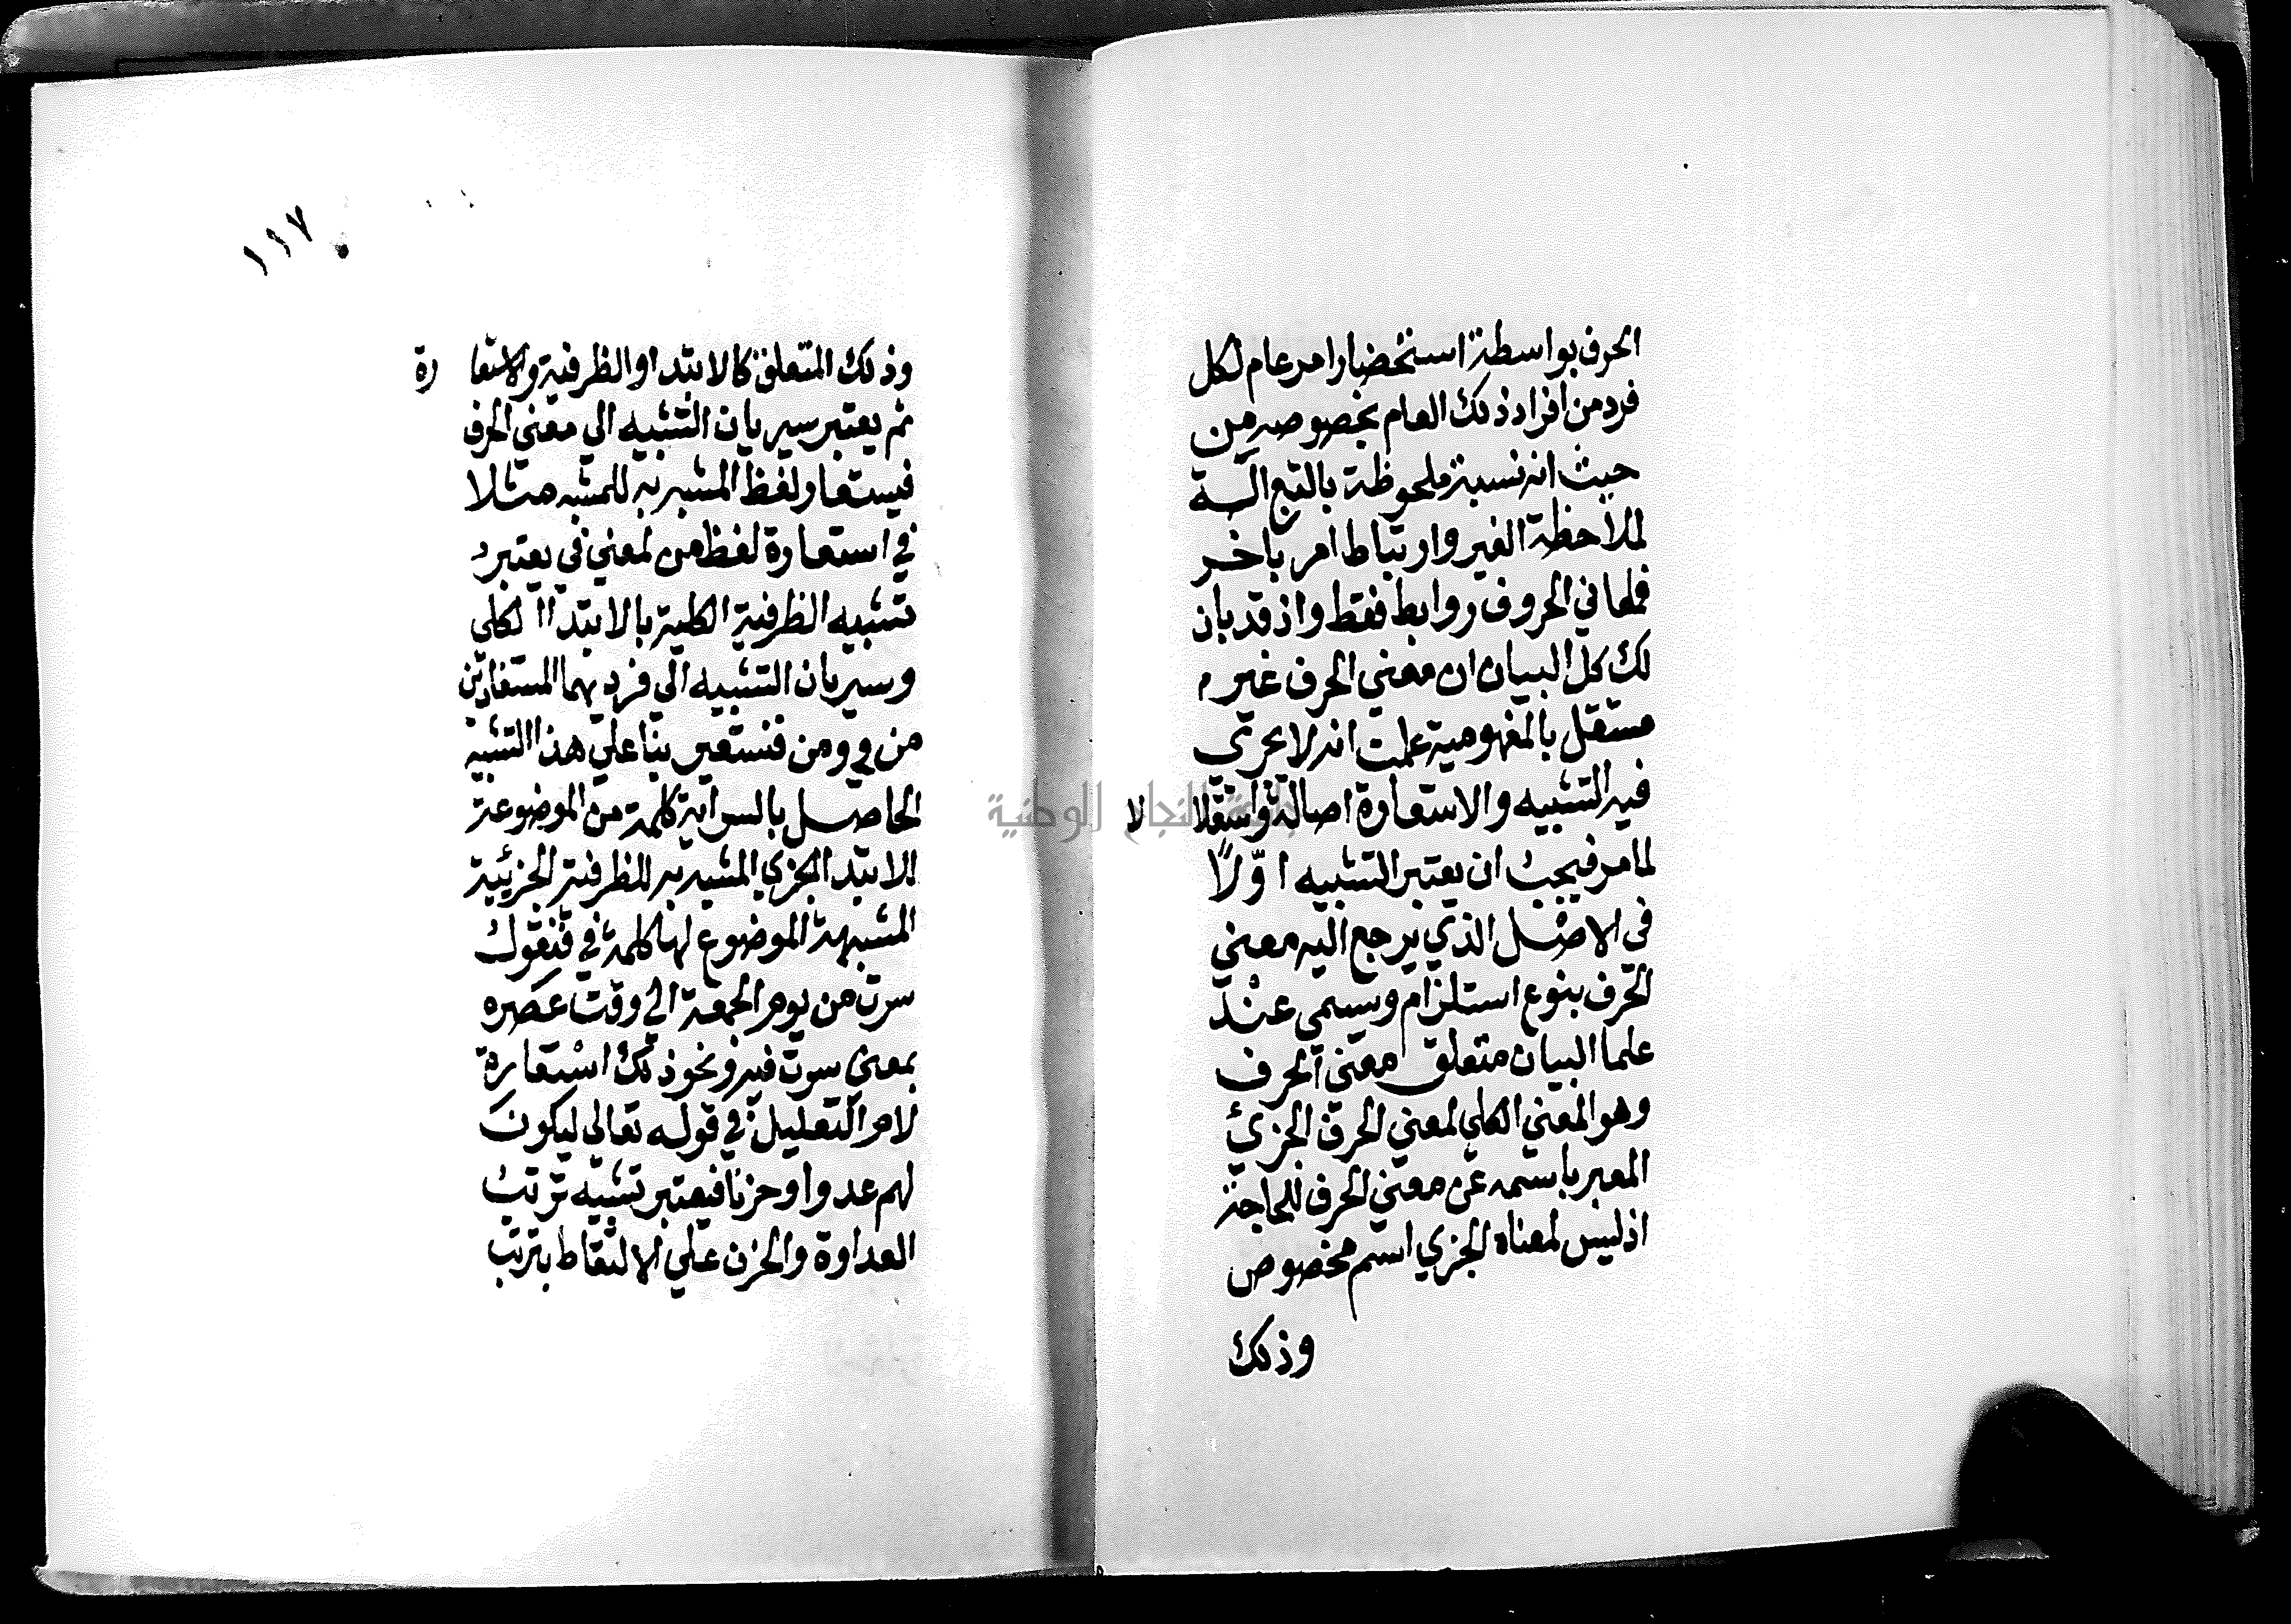 الحرف بواسطة استحضار امر عام لكل
فرد من افراد ذلك العام بخصوصه من
حيث انه نسبة ملحوظة بالتبع آلة
لملاحظة الغير وارتباط امر باخر
فمعاني الحروف روابط فقط واذ قد بان
لك كل البيان ان معني الحرف غير م
مستقل بالمفهومية علمت انه لا يجري
فيه التشبيه والاستعارة اصالة واستقلالا
لما مر فيجب ان يعتبر التشبيه اوّلاً
في الاصل الذي يرجع اليه معني
الحرف بنوع استلزام ويسمي عند
علما البيان متعلق معني الحرف
وهو المعني الكلي لمعني الحرف الجزئ
المعبر باسمه عن معني الحرف للحاجة
اذ ليس لمعناه الجزي اسم مخصوص
وذلك
١١٧
وذلك المتعلق كالابتدا والظرفية والاستعارة
ثم يعتبر سيريان التشبيه الي معني الحرف
فيستعار لفظ المشبه به للمشبه مثلا
في استعارة لفظ من لمعني في يعتبر
تشبيه الظرفية الكلية بالابتدا الكلي
وسيريان التشبيه الي فرديهما المستفادين
من في ومن فنستعير بنا علي هذا التشبيه
الحاصل بالسراية كلمة من الموضوعة
للابتدا الجزي المشبه به للظرفية الجزئية
المشبهة الموضوع لها كلمة في فنقول
سرت من يوم الجمعة الي وقت عصره
بمعني سرت فيه ونحو ذلك استعارة
لام التعليل في قوله تعالي ليكون
لهم عدوا وحزنا فيعتبر تشبيه ترتب
العداوة والحزن علي الالتقاط بترتب
جامعة النجاح الوطنية